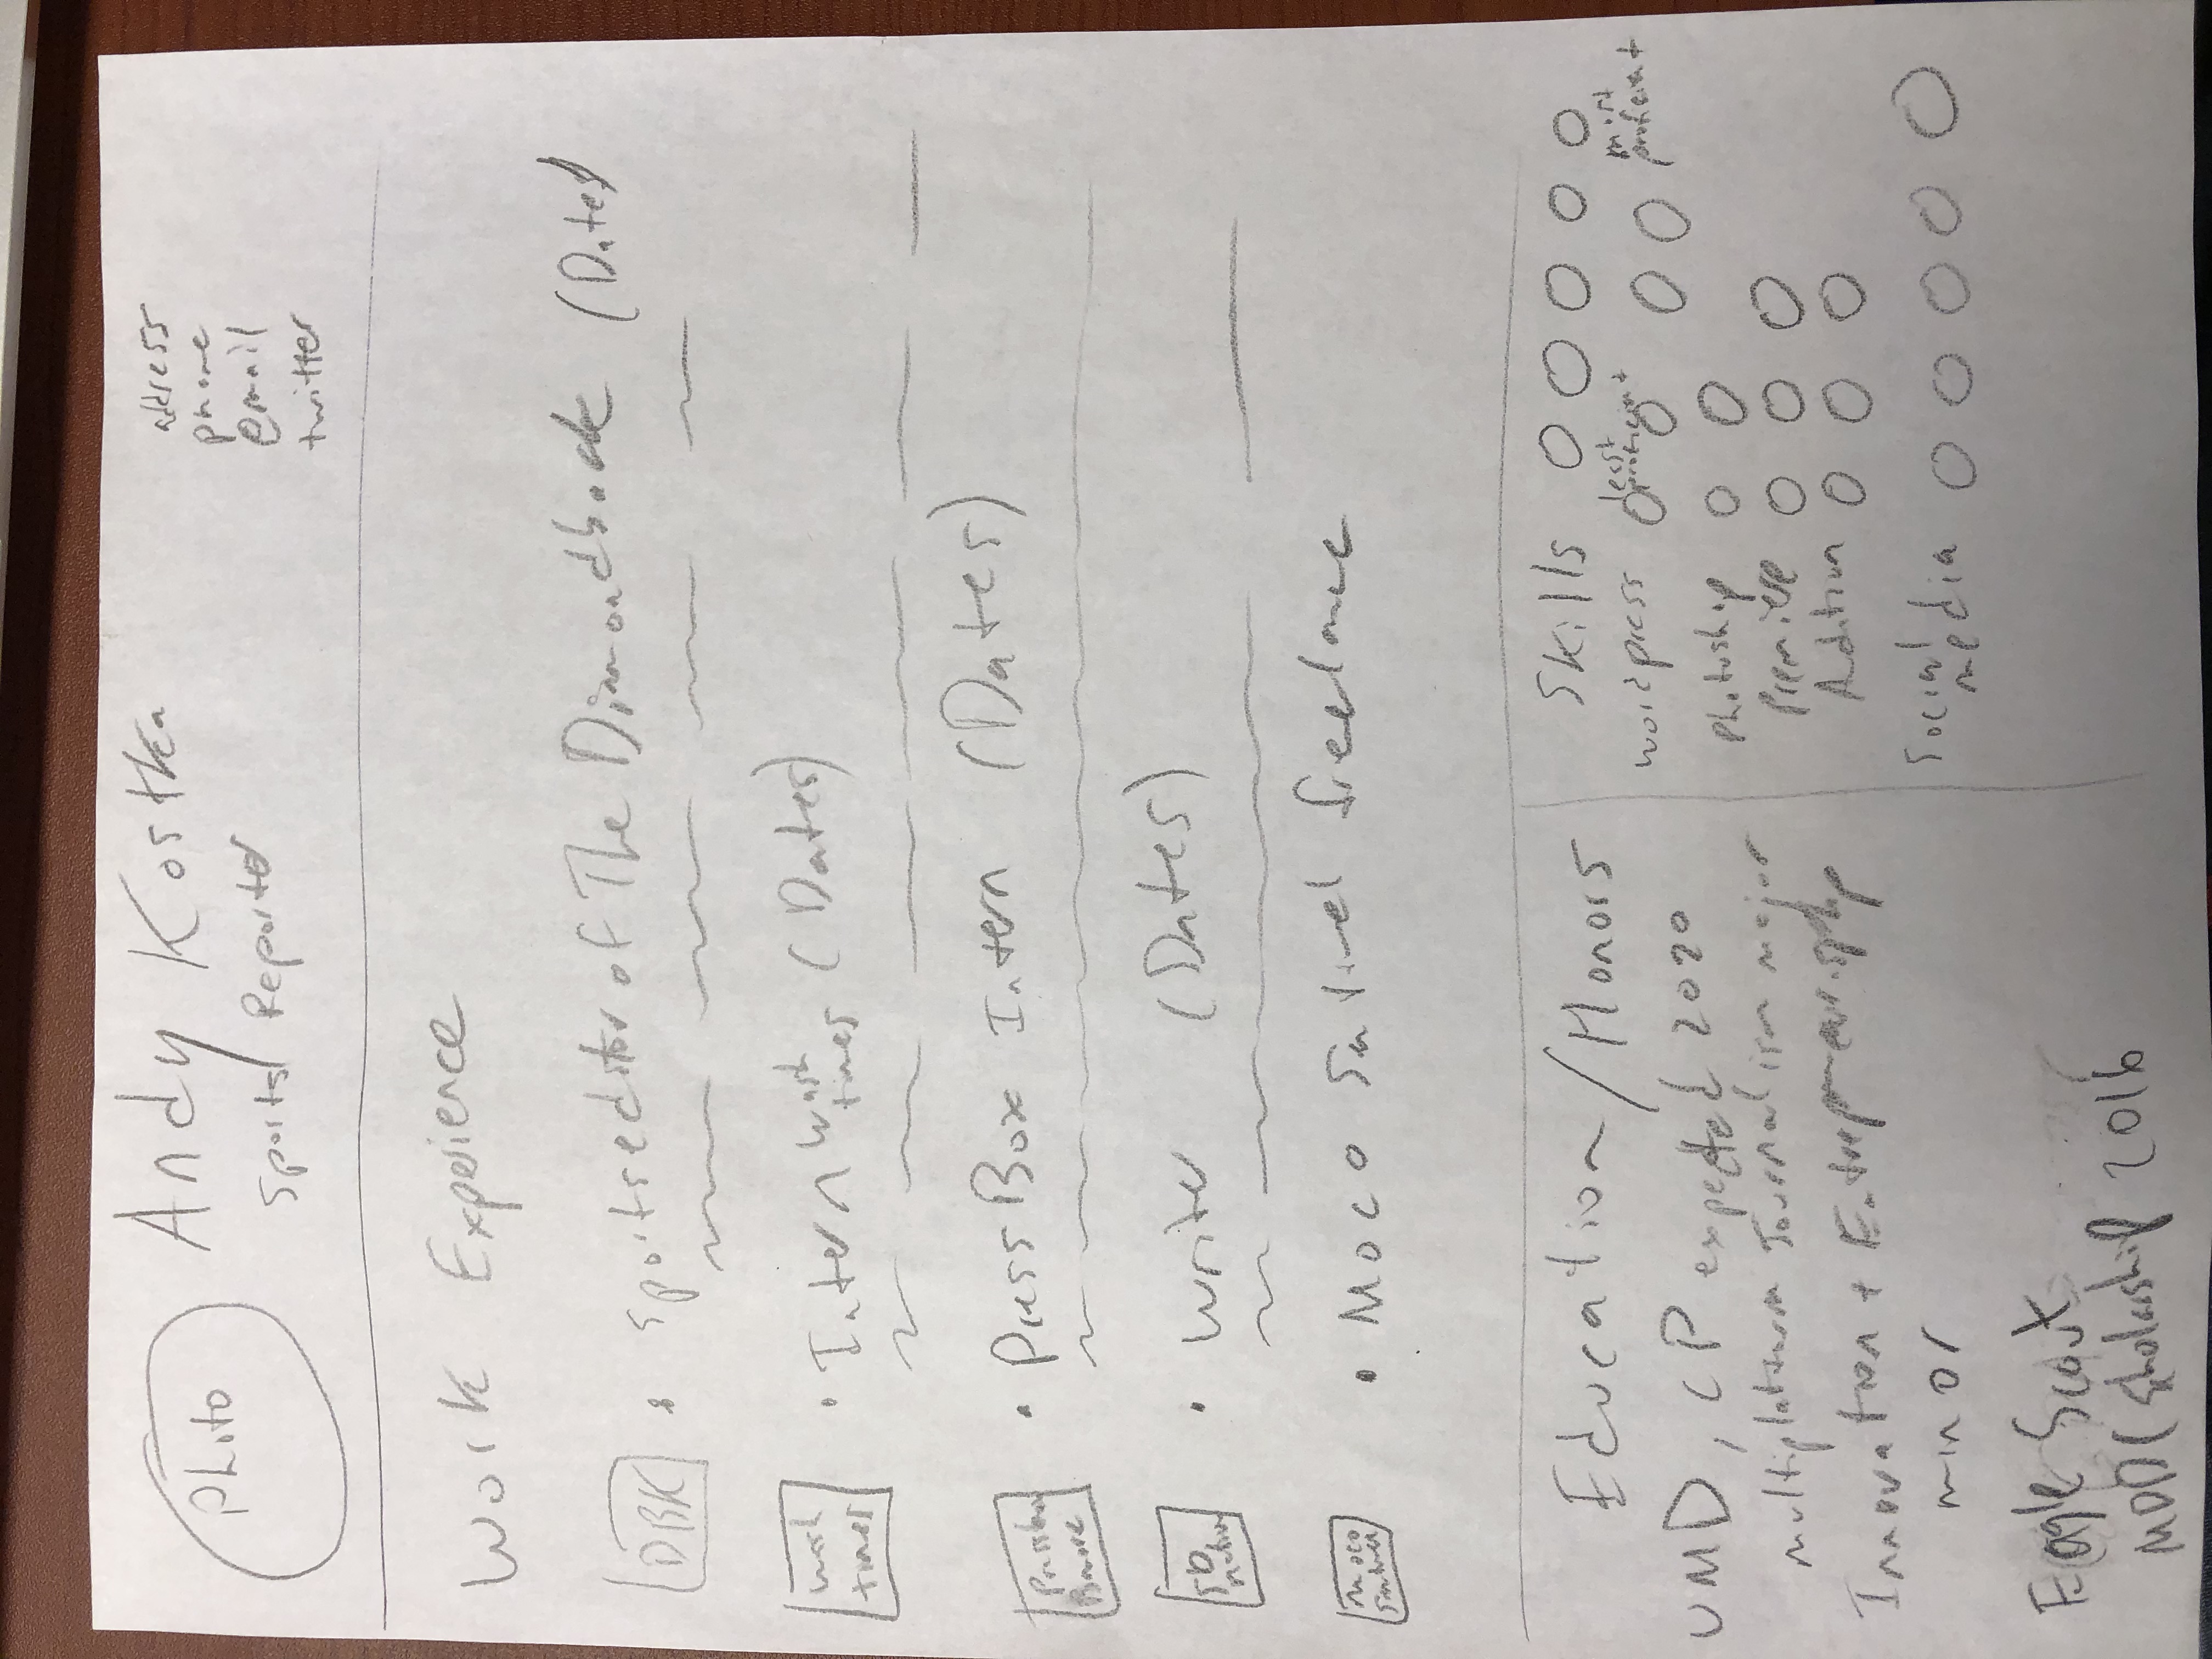 Photo
Andy Kostka
Sports Reporter
address
phone
email
twitter
Work Experience
DBK
• Sports editor of The Diamondback (Dates)
Wash
times
• Intern Wash times (Dates)
Pressbox
Bmore
• Press Box Intern (Dates)
SB
nation
• Writer (Dates)
Moco
Sentinel
• Moco Sentinel freelance
Education/Honors
UMD, CP expected 2020
Multiplatform Journalism major
Innovation + Entrepreneurship
minor
Eagle Scout
MDDC Scholarship 2016
Skills
least
proficient
most
proficient
Wordpress
Photoshop
Premiere
Audition
Social
media